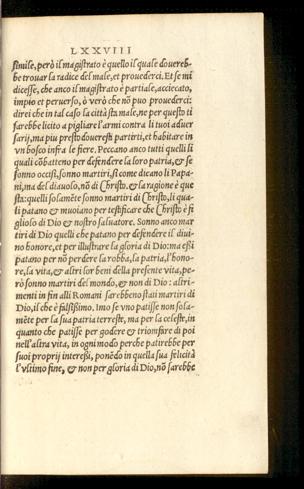 LXXVIII
simile, però il magistrato è quello il quale dovereb-
be trovar la radice del male, et provederci. Et se mi
dicesse, che anco il magistrato è partiale, acciecato,
impio et perverso, ò verò che nō può provederci:
direi che in tal caso la città sta male, ne per questo ti
sarebbe licito a pigliare l'armi contra li tuoi adver
sarij, ma piu presto doveresti partirti, et habitare in
vn bosco infra le fiere. Peccano anco tutti quelli li
quali cōbatteno per defendere la loro patria, & se
sonno occisi, sonno martiri, sì come dicano li Papa-
ni, ma del diavolo, nō di Christo, & la ragione è que
sta: quelli solamēte sonno martiri di Christo, li qua-
li patano & muoiano per testificare che Christo è fi
gliolo di Dio & nostro salvatore. Sonno anco mar
tiri di Dio quelli che patano per defendere il divi-
no honore, et per illustrare la gloria di Dio: ma essi
patano per nō perdere la robba, la patria, l'hono-
re, la vita, & altri lor beni della presente vita, pe-
rò sonno martiri del mondo, & non di Dio: altri-
menti in fin alli Romani sarebbeno stati martiri di
Dio, il che è falsissimo. Imo se vno patisse non sola-
mēte per la sua patria terreste, ma per la celeste, in
quanto che patisse per godere & triomfare di poi
nell'altra vita, in ogni modo perche patirebbe per
suoi proprij interessi, ponēdo in quella sua felicità
l'vltimo fine, & non per gloria di Dio, nō sarebbe